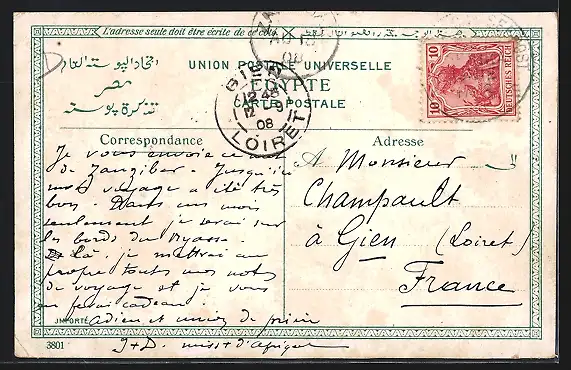 L'adresse seule doit être écrite de ce côté
UNION POSTALE UNIVERSELLE
EGYPTE
CARTE POSTALE
اتحاد البوسته العام
مصر
تذكرة بوسته
10
10
DEUTSCHES REICH
GIEN
12 45
12 9
08
LOIRET
08
Correspondance
Je vous envoie
de Zanzibar. Jusqu'ici
mon voyage a été très
bon. Dans un mois
seulement je serai sur
les bords du Nyassa.
Là je mettrai au
propre toutes mes notes
de voyage et je vous
en ferai cadeau.
adieu et union de prière
J+D. miss+ d'Afrique
Adresse
A Monsieur
Champault
à Gien (Loiret)
France
IMPORTÉ
3801